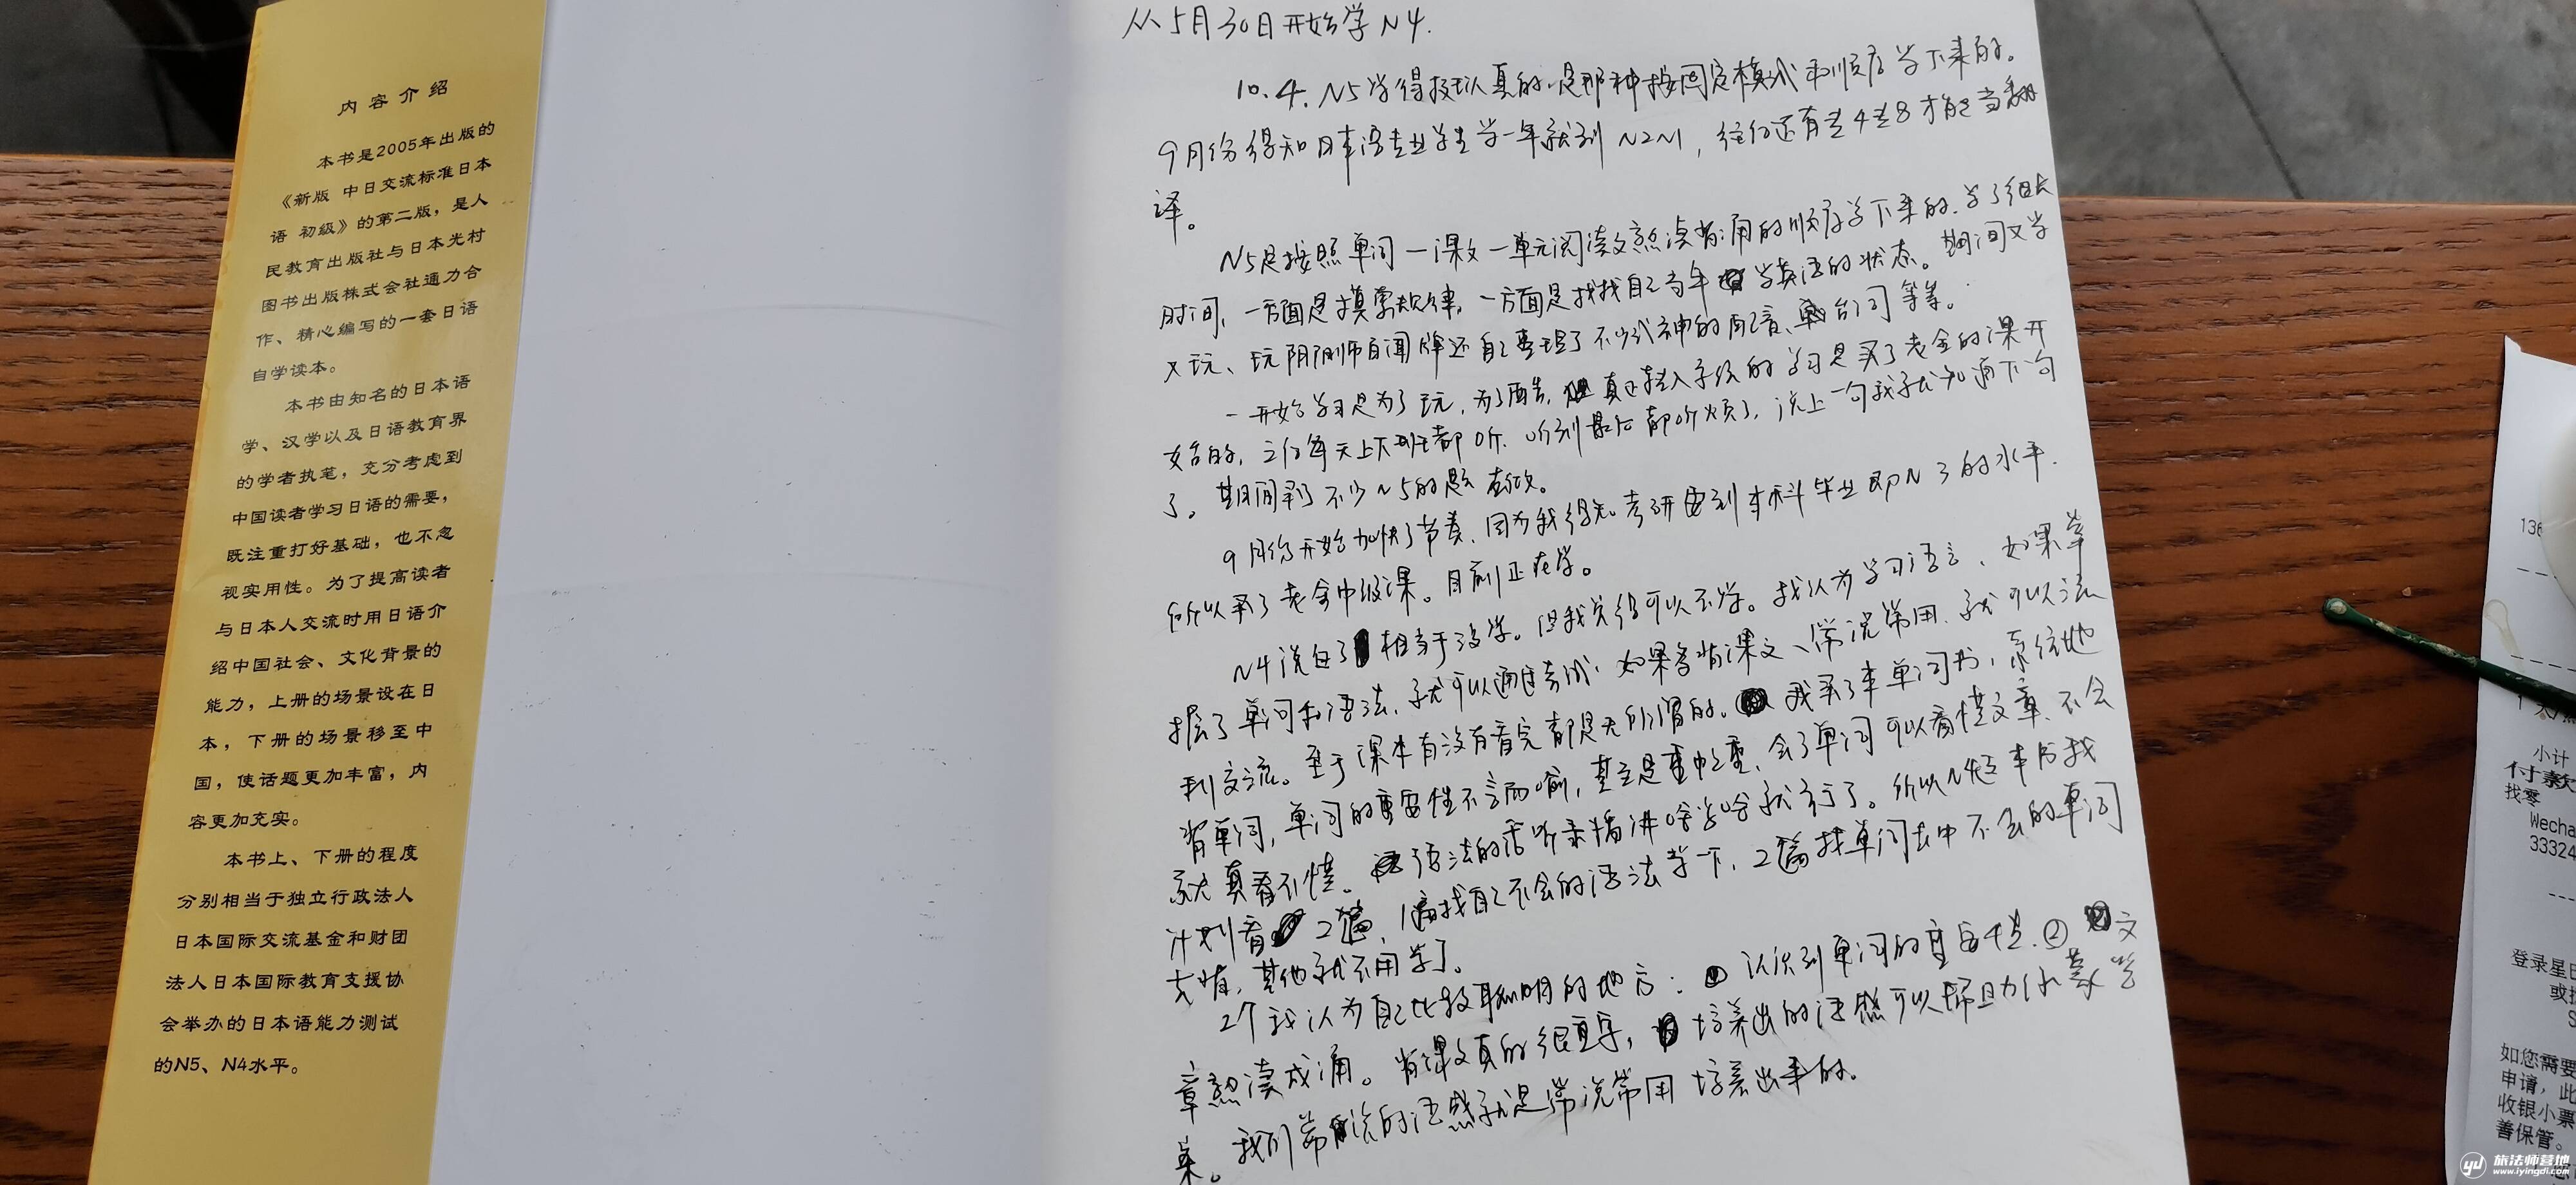 内容介绍
本书是2005年出版的
《新版 中日交流标准日本
语 初级》的第二版，是人
民教育出版社与日本光村
图书出版株式会社通力合
作、精心编写的一套日语
自学读本。
本书由知名的日本语
学、汉学以及日语教育界
的学者执笔，充分考虑到
中国读者学习日语的需要，
既注重打好基础，也不忽
视实用性。为了提高读者
与日本人交流时用日语介
绍中国社会、文化背景的
能力，上册的场景设在日
本，下册的场景移至中
国，使话题更加丰富，内
容更加充实。
本书上、下册的程度
分别相当于独立行政法人
日本国际交流基金和财团
法人日本国际教育支援协
会举办的日本语能力测试
的N5、N4水平。
从5月30日开始学N4.
10.4. N5学得挺认真的.是那种按固定模式和顺序学下来的。
9月份得知日本语专业学生学一年就到N2N1，往后还有专4专8才能当翻
译。
N5是按照单词一课文一单元阅读文熟读背诵的顺序学下来的.学了很长
时间，一方面是摸索规律，一方面是找找自己当年学英语的状态。期间又学
又玩、玩阴阳师百闻牌还自己整理了不少式神的配音、台词等等。
一开始学习是为了玩，为了酷，真正转入系统的学习是买了老金的课开
始的，之后每天上下班都听.听到最后都听烦了，说上一句我就知道下句
了。期间买了不少N5的题在做。
9月份开始加快了节奏，因为我得知考研要到本科毕业即N3的水平.
所以买了老金中级课。目前正在学。
N4说白了相当于没学。但我觉得可以不学。我认为学习语言，如果掌
握了单词和语法，就可以通过考试.如果多背课文、常说常用、就可以达
到交流。至于课本有没有看完都是无所谓的。我买了本单词书，系统地
背单词，单词的重要性不言而喻，甚至是重中之重，会了单词可以看懂文章、不会
就真看不懂。语法的话听录播讲啥学啥就行了。所以N4这本书我
计划看2遍，1遍找自己不会的语法学一下，2遍找单词表中不会的单词
去背，其他就不用学了。
2个我认为自己比较聪明的地方：① 认识到单词的重要性.② 文
章熟读成诵。背课文真的很重要，培养出的语感可以帮助你蒙答
案。我们常说的语感就是常说常用培养出来的.
136
小计
付款
找零
Wecha
33324
登录星巴
如您需要
申请，此
收银小票
善保管。
旅法师营地
www.iyingdi.com